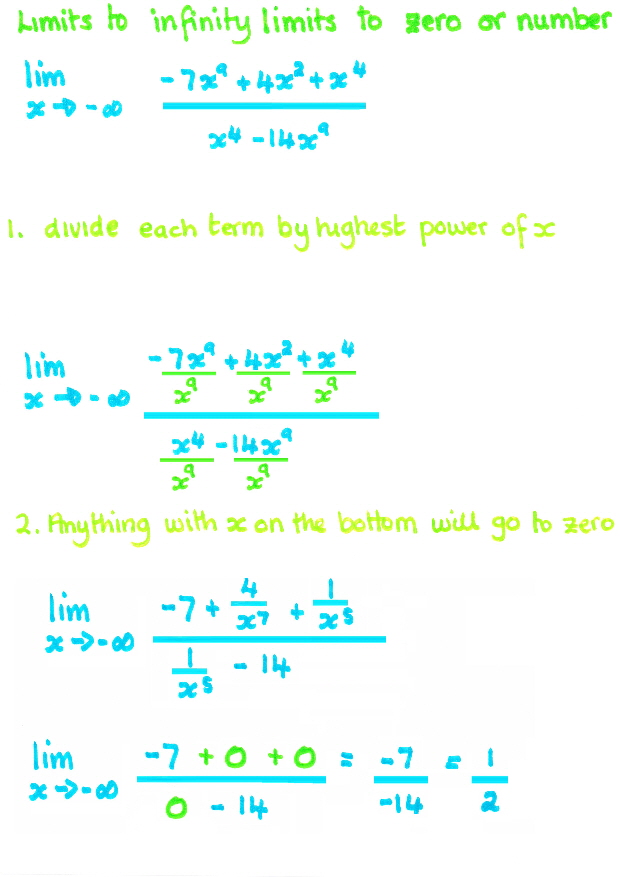 Limits to infinity limits to zero or number
lim x→-∞ (-7x⁹ + 4x² + x⁴) / (x⁴ - 14x⁹)
1. divide each term by highest power of x
lim x→-∞ (-7x⁹/x⁹ + 4x²/x⁹ + x⁴/x⁹) / (x⁴/x⁹ - 14x⁹/x⁹)
2. Anything with x on the bottom will go to zero
lim x→-∞ (-7 + 4/x⁷ + 1/x⁵) / (1/x⁵ - 14)
lim x→-∞ (-7 + 0 + 0) / (0 - 14) = -7/-14 = 1/2